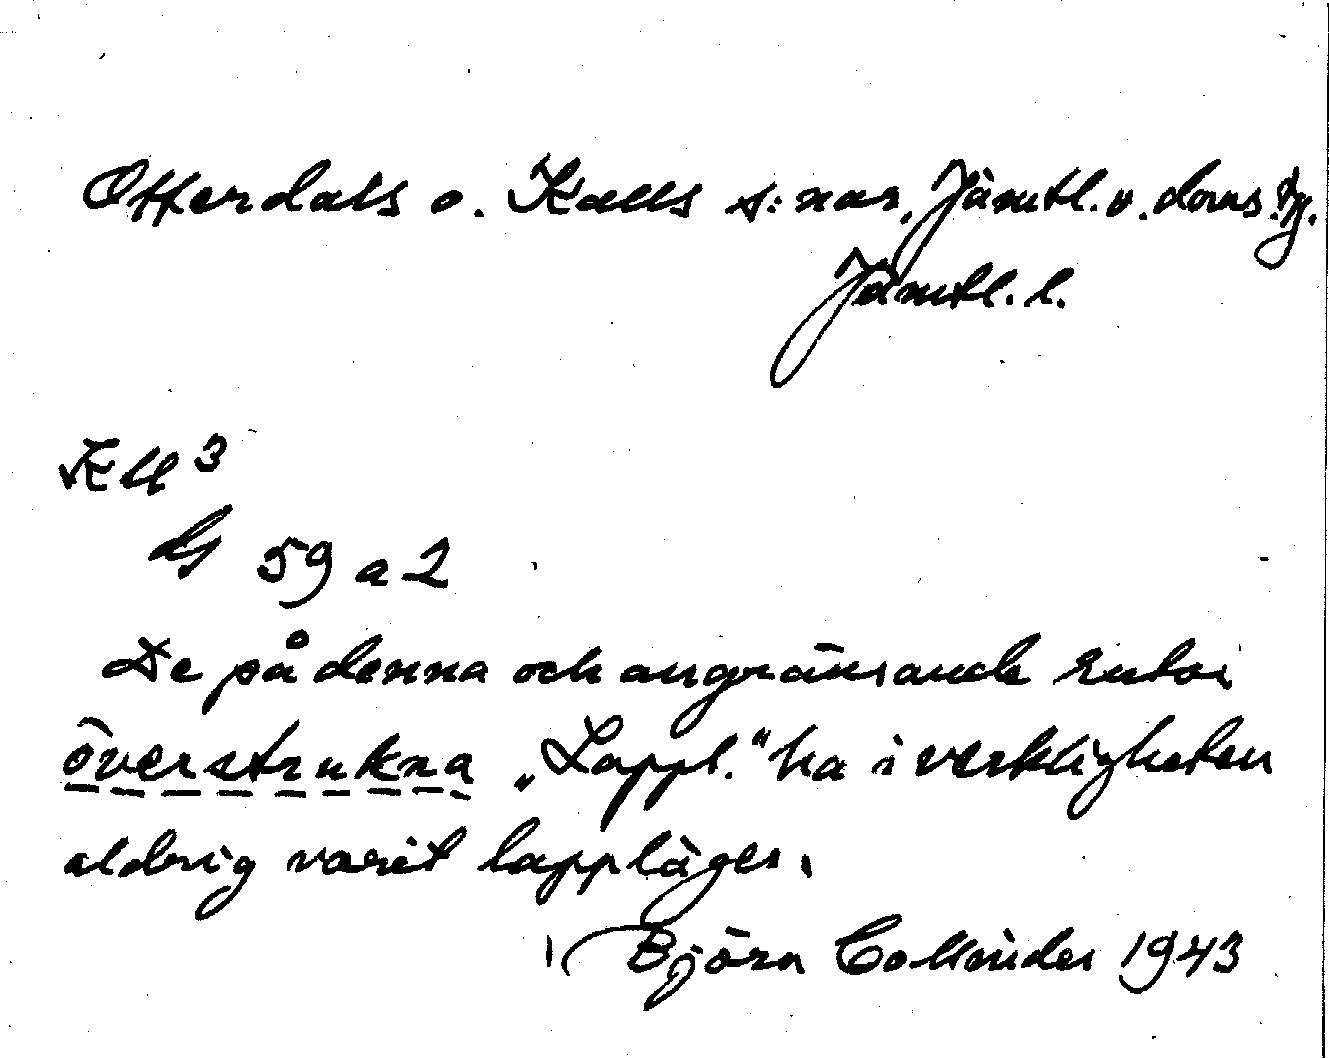 Offerdals o. Kalls s:nar, Jämtl. v. doms. tg.
Jämtl. l.
KU³
Bl 59 a 2
De på denna och angränsande rutor
överstrukna „Lappl." ha i verkligheten
aldrig varit lappläger.
Björn Collinder 1943